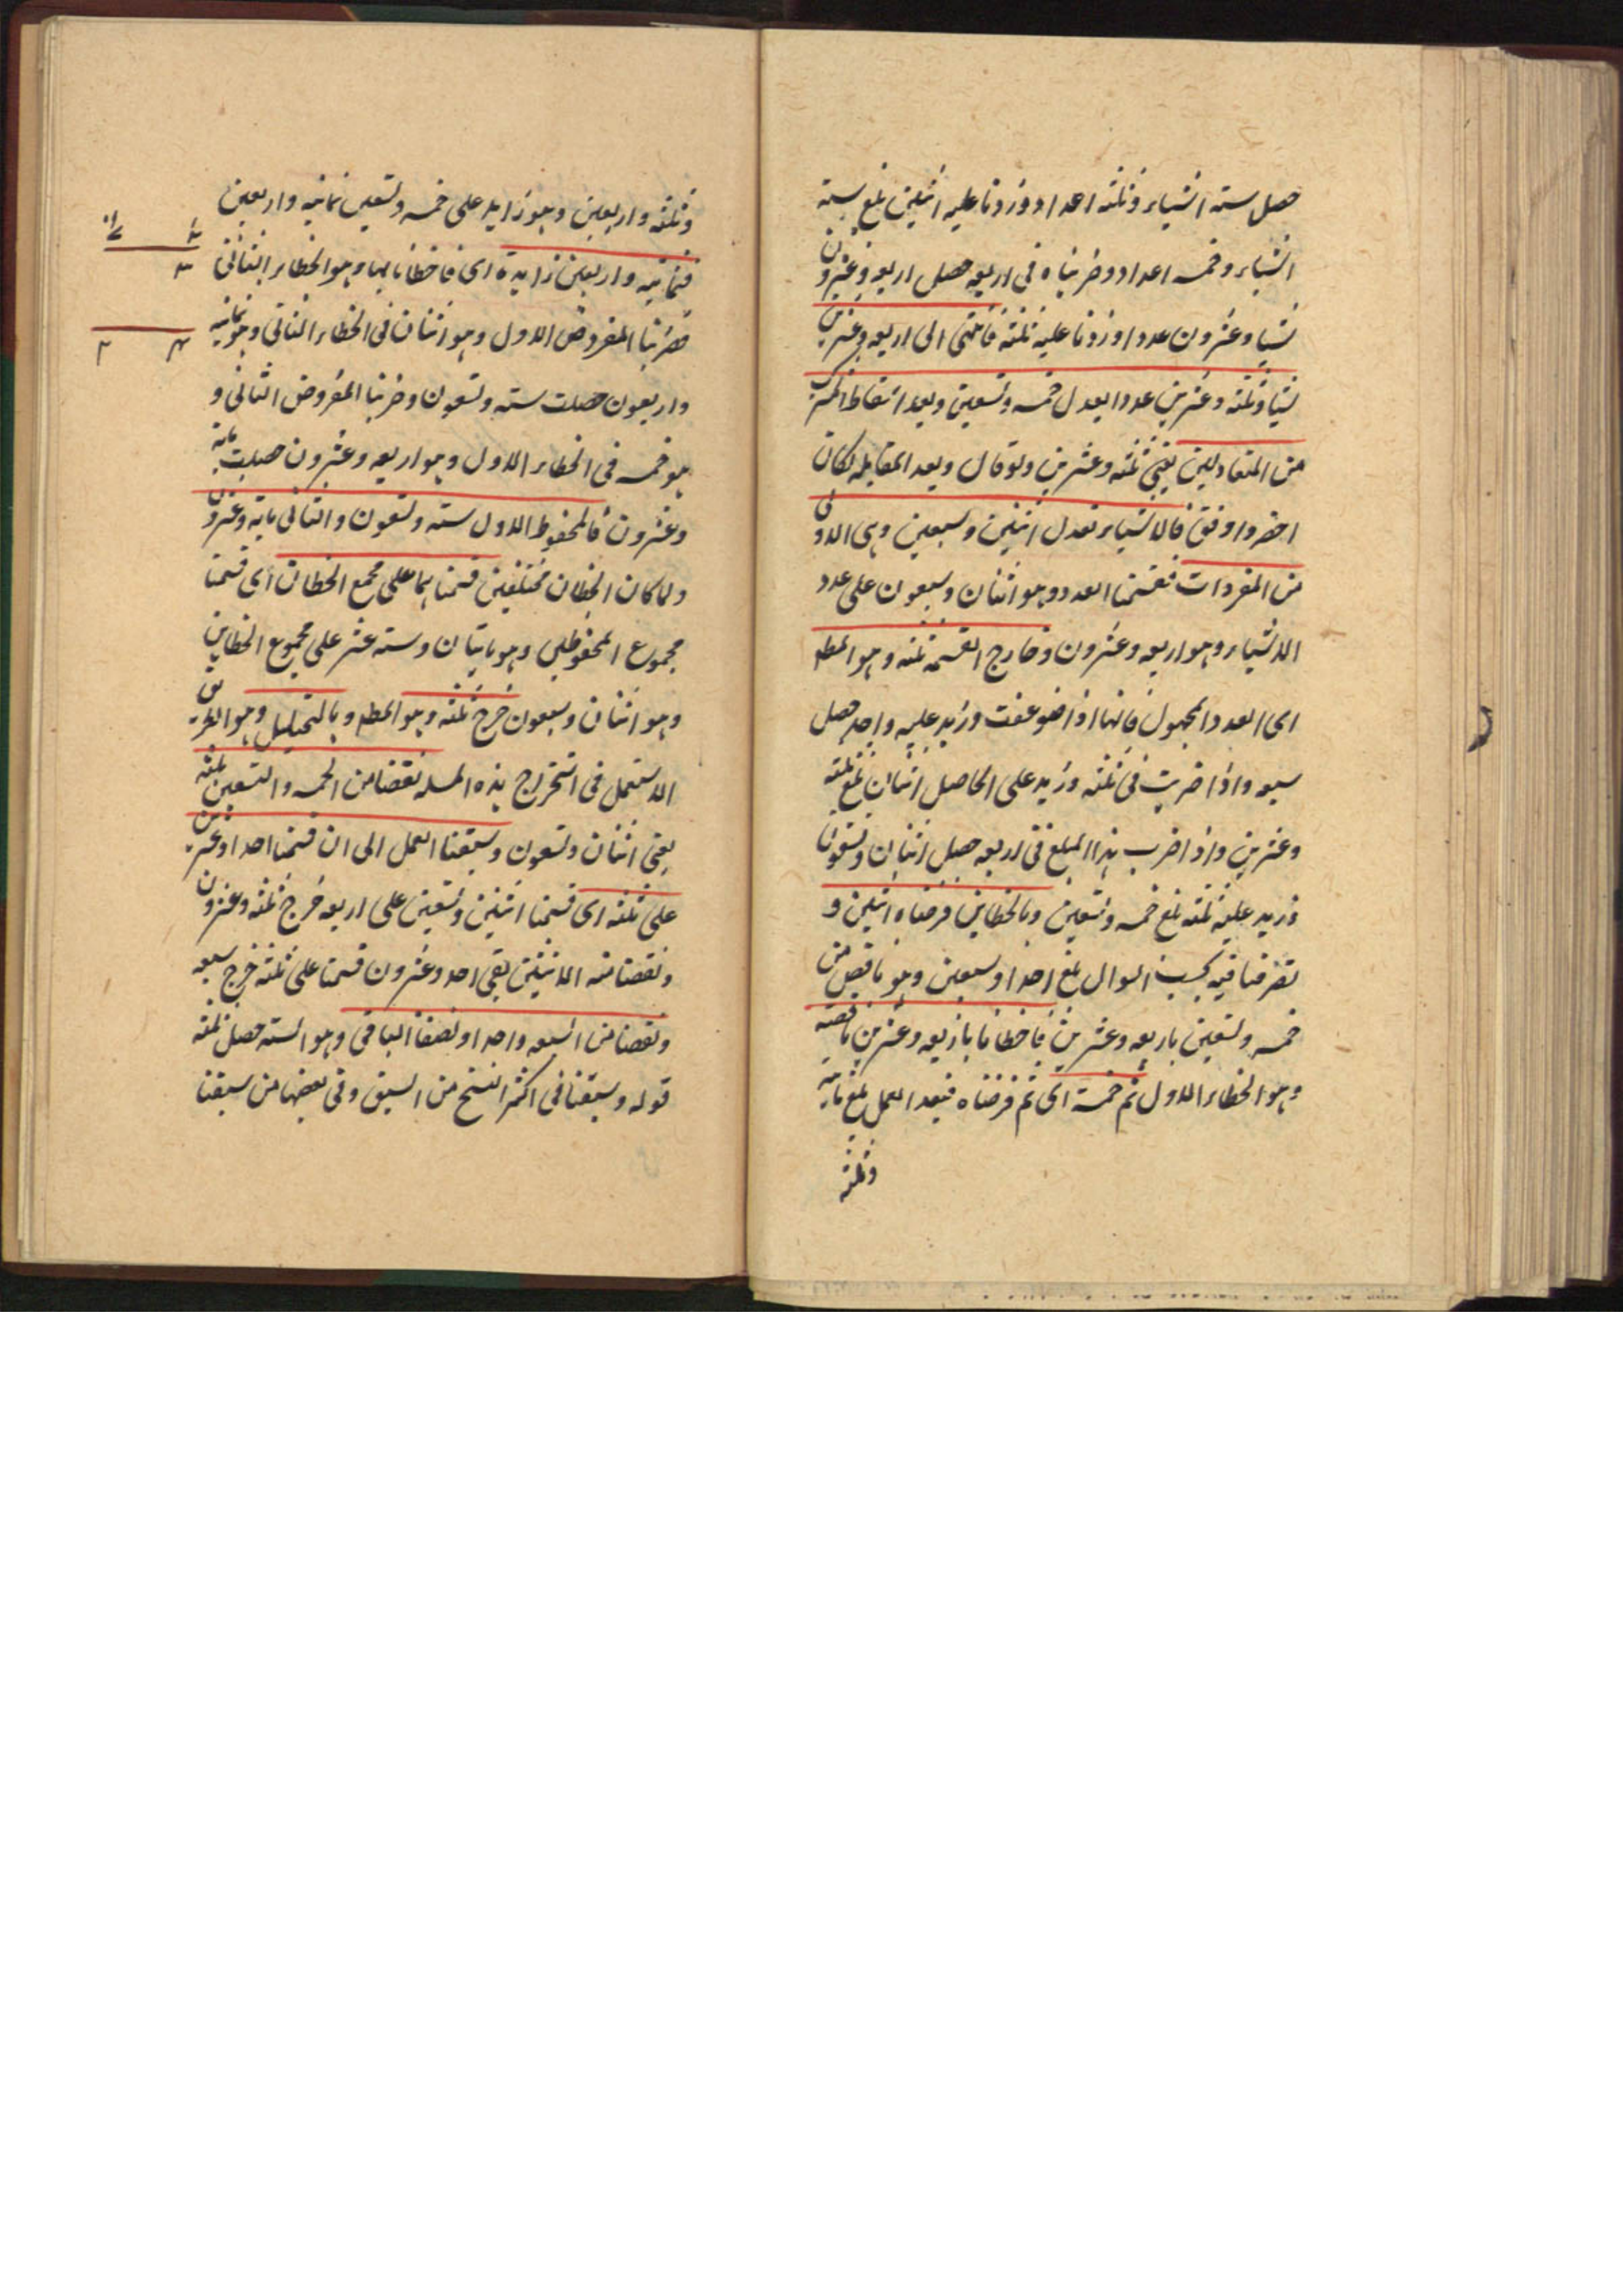 حصل ستة اشياء و ثلثه اعداد و زدنا عليه اثنين بلغ ستة
اشياء و خمسه اعداد و ضربناه فى اربعه حصل اربعه و عشرون
شيا و عشرون عددا و زدنا عليه ثلثه فانتهى الى اربعه و عشرين
شيا و ثلثه و عشرين عددا يعدل خمسه و تسعين و بعد اسقاط المشترك
من المتعادلين يعنى ثلثه و عشرين و لو قال و بعد المقابله لكان
اخصر و اوفق فالاشياء تعدل اثنين و سبعين و هى الاولى
من المفردات فقسمنا العدد و هو اثنان و سبعون على عدد
الاشياء و هو اربعه و عشرون و خارج القسمه ثلثه و هو المط
اى العدد المجهول فانها اذا ضوعفت و زيد عليه واحد حصل
سبعه و اذا ضربت فى ثلثه و زيد على الحاصل اثنان بلغ ثلثه
و عشرين و اذا ضرب هذا المبلغ فى اربعه حصل اثنان و تسعون
و زيد عليه ثلثه بلغ خمسه و تسعين و بالخطاين فرضناه اثنين و
تصرفنا فيه بحسب السوال بلغ احدا و سبعين و هو ناقص من
خمسه و تسعين باربعه و عشرين فاخطانا باربعه و عشرين ناقصه
و هو الخطاء الاول ثم خمسة اى ثم فرضناه فبعد العمل بلغ مايه
و ثلثه
و ثلثه و اربعين و هو زايد على خمسه و تسعين ثمانيه و اربعين
فثمانيه و اربعين زايدة اى فاخطانا بها و هو الخطاء الثانى
فضربنا المفروض الاول و هو اثنان فى الخطاء الثانى و هو ثمانيه
و اربعون حصلت سته و تسعون و ضربنا المفروض الثانى و
هو خمسه فى الخطاء الاول و هو اربعه و عشرون حصلت مايه
و عشرون فالمحفوظ الاول سته و تسعون و الثانى مايه و عشرون
و لما كان الخطان مختلفين قسمنا هما على مجمع الخطان اى قسمنا
مجموع المحفوظين و هو مايتان و سته عشر على مجموع الخطاين
و هو اثنان و سبعون خرج ثلثه و هو المط و بالتحليل و هو الطريق
الاستعمل فى استخراج هذه المسله نقضنا من الخمسه و التسعين ثلثه
يعنى اثنان و تسعون و سبقنا العمل الى ان قسمنا احدا و عشرين
على ثلثه اى قسمنا اثنين و تسعين على اربعه خرج ثلثه و عشرون
و نقصنا منه الاثنين بقى احد و عشرون قسمنا على ثلثه خرج سبعه
و نقصنا من السبعه واحدا و نصفنا الباقى و هو السته حصل ثلثه
قوله و سبقنا فى اكثر النسخ من السبق و فى بعضها من سبقنا